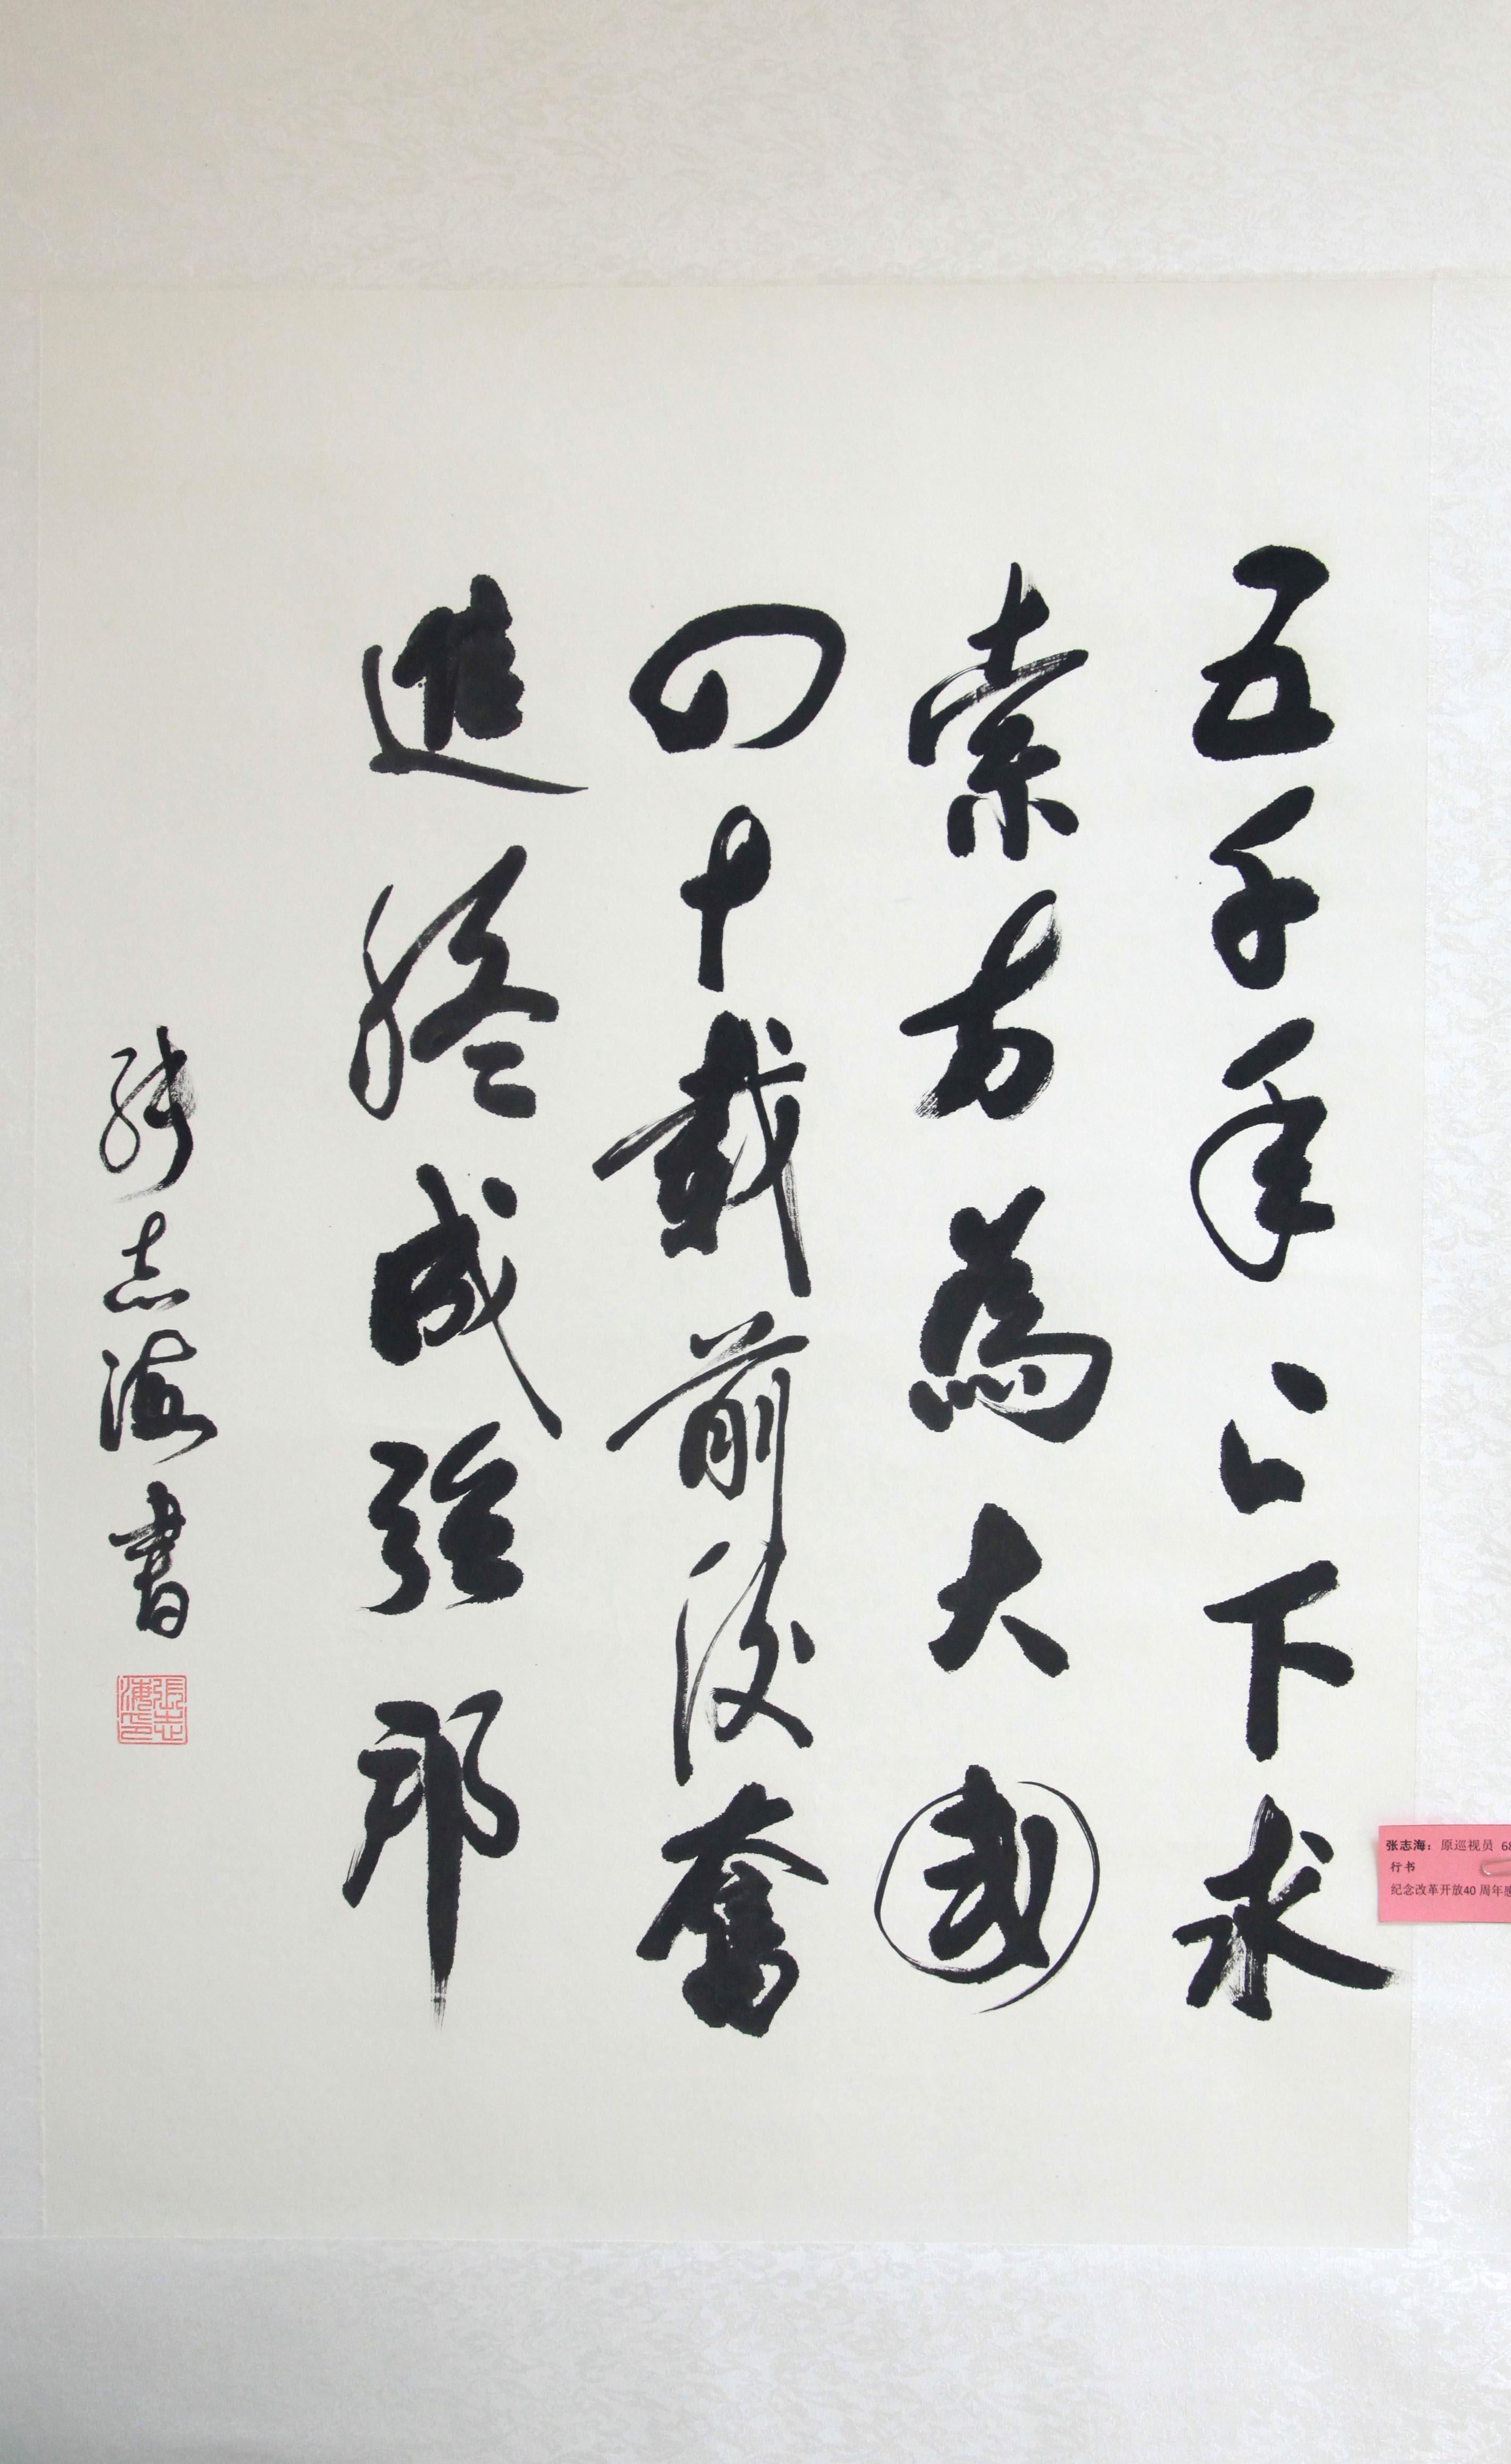 五千年上下求
索方為大國
四十载前後奮
進終成強邦
张志海書
張志海印
张志海：原巡视员 68
行书
纪念改革开放40周年感